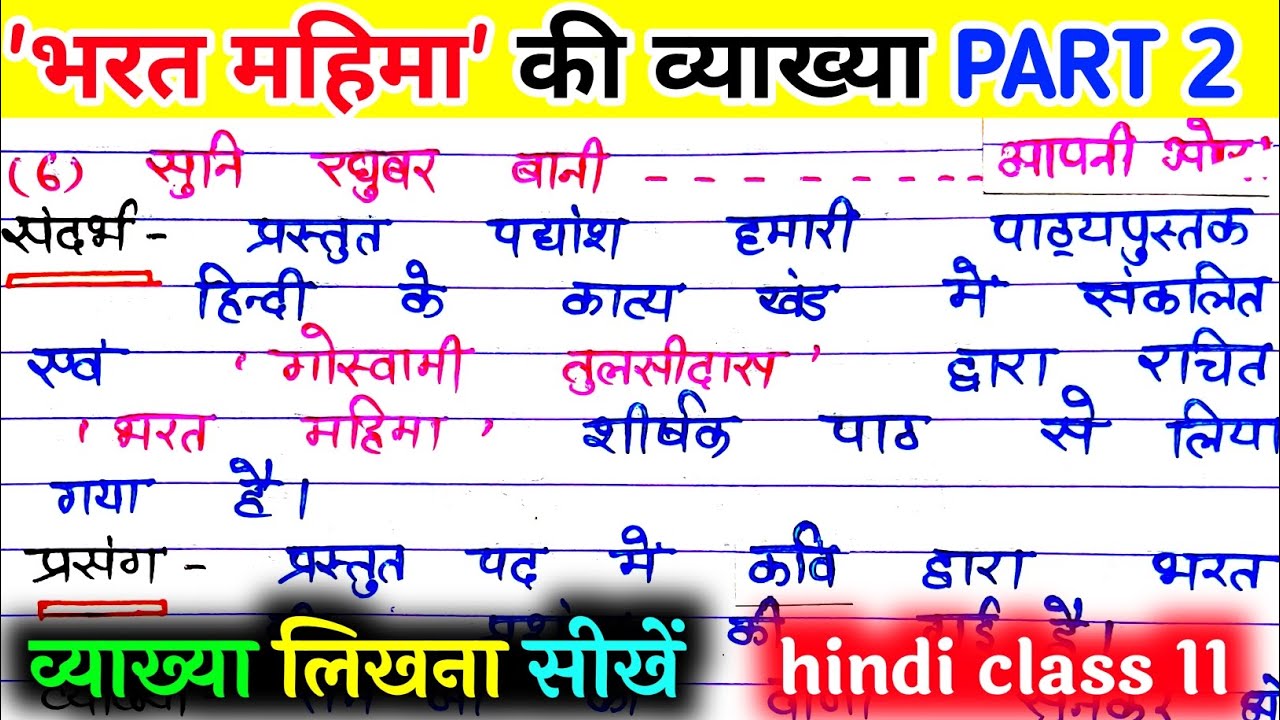 'भरत महिमा' की व्याख्या PART 2
(6) सुनि रघुबर बानी - - - - - - - - - आपनी ओर..
संदर्भ - प्रस्तुत पद्यांश हमारी पाठ्यपुस्तक
हिन्दी के काव्य खंड में संकलित
एवं 'गोस्वामी तुलसीदास' द्वारा रचित
'भरत महिमा' शीर्षक पाठ से लिया
गया है।
प्रसंग - प्रस्तुत पद में कवि द्वारा भरत
की गई है।
व्याख्या लिखना सीखें hindi class 11